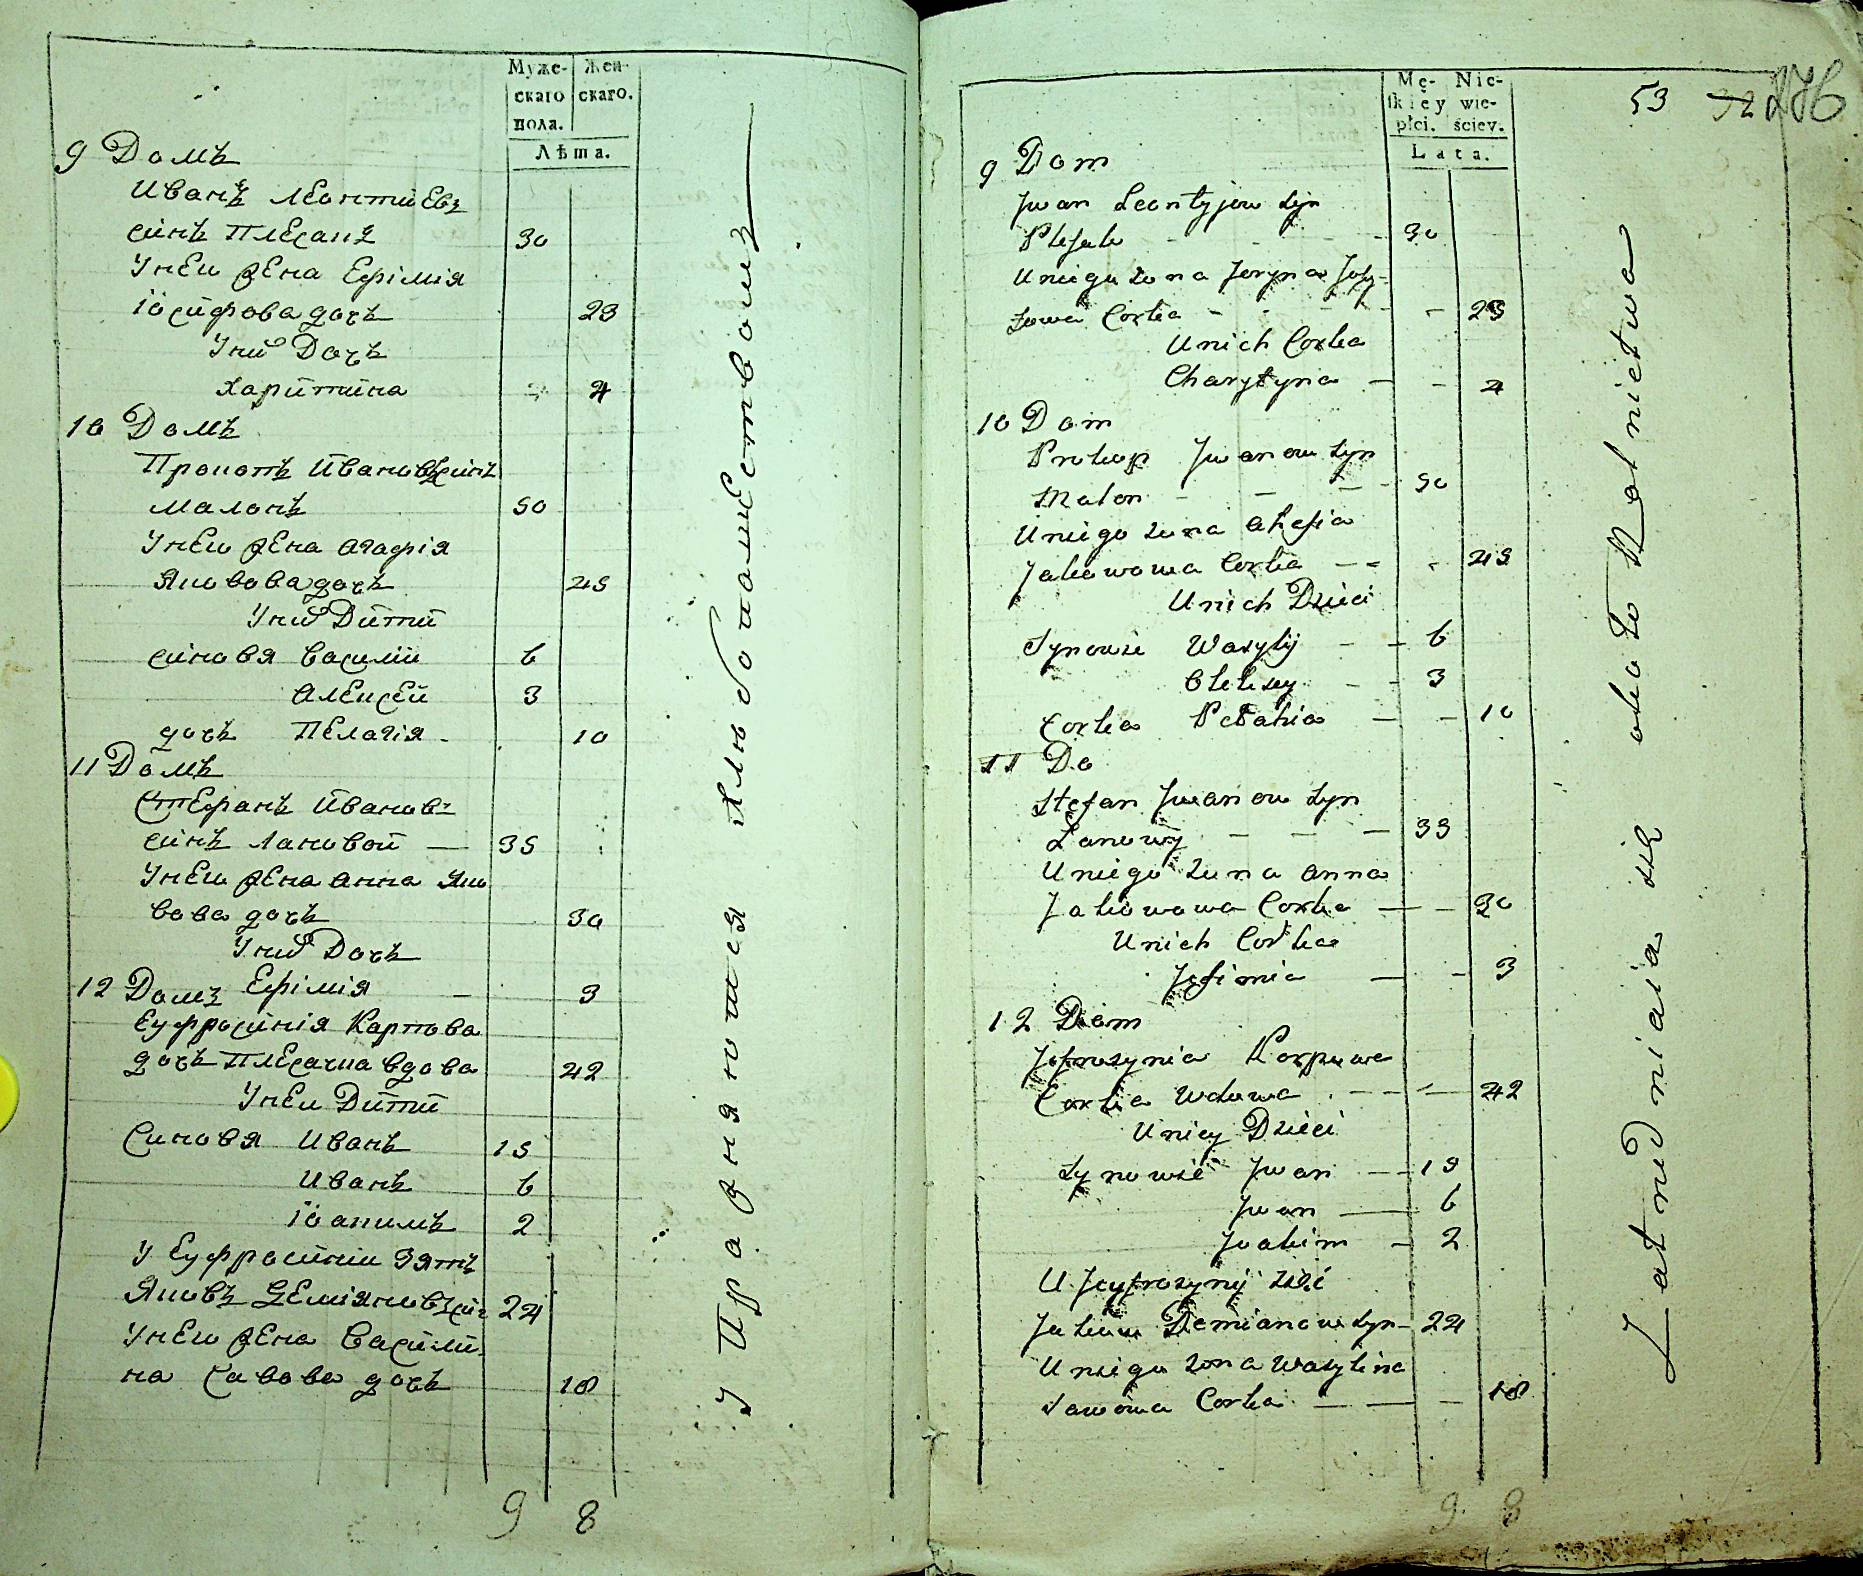 Муже- Жен-
скаго скаго.
пола.
Лѣта.
9 Домъ
Иванъ Леонтиевъ
синъ Плесака 30
У неи жена Ефімия
Іосифова дочъ 23
У них Дочъ
Харитина 4
10 Домъ
Прокопъ Ивановъ синъ
Малонъ 50
У неи жена Агафія
Яковова дочъ 45
У них Дити
синовя Василий 6
Алексей 3
дочъ Пелагія 10
11 Домъ
Стефанъ Ивановъ
синъ Лановой 35
У неи жена Анна Яко
вова дочъ 30
У них Дочъ
Ефімія 3
12 Домъ
Еуфросинія Карпова
дочъ Плесачка вдова 42
У неи Дити
Синовя Иванъ 15
Иванъ 6
Іоакимъ 2
У Еуфросинии зять
Яковъ Деміяновъ син 24
У неи жена Васили
на Савова дочъ 18
9 8
Упражняются хлебопашествомъ
53 276
Mę- Nie-
skiey wie-
płci. ściey.
Lata.
9 Dom
Jwan Leontyjow syn
Plesak 30
U niego żona Jeryna Josy
fowa Corka 23
U nich Corka
Charytyna 4
10 Dom
Prokop Jwanow syn
Malon 50
U niego żona Ahafia
Jakowowa Corka 45
U nich Dzieci
Synowie Wasylij 6
Oleksey 3
Corka Pelahia 10
11 Do
Stefan Jwanow syn
Lanowy 33
U niego żona Anna
Jakowowa Corka 30
U nich Corka
Jefimia 3
12 Dom
Jefrozynia Karpowa
Corka Wdowa 42
U niey Dzieci
Synowie Jwan 15
Jwan 6
Joakim 2
U Jeyfrozynij zięć
Jakow Demianow syn 24
U niego żona Wasylina
Sawowa Corka 18
9 8
Zatrudniaią się około Rolnictwa